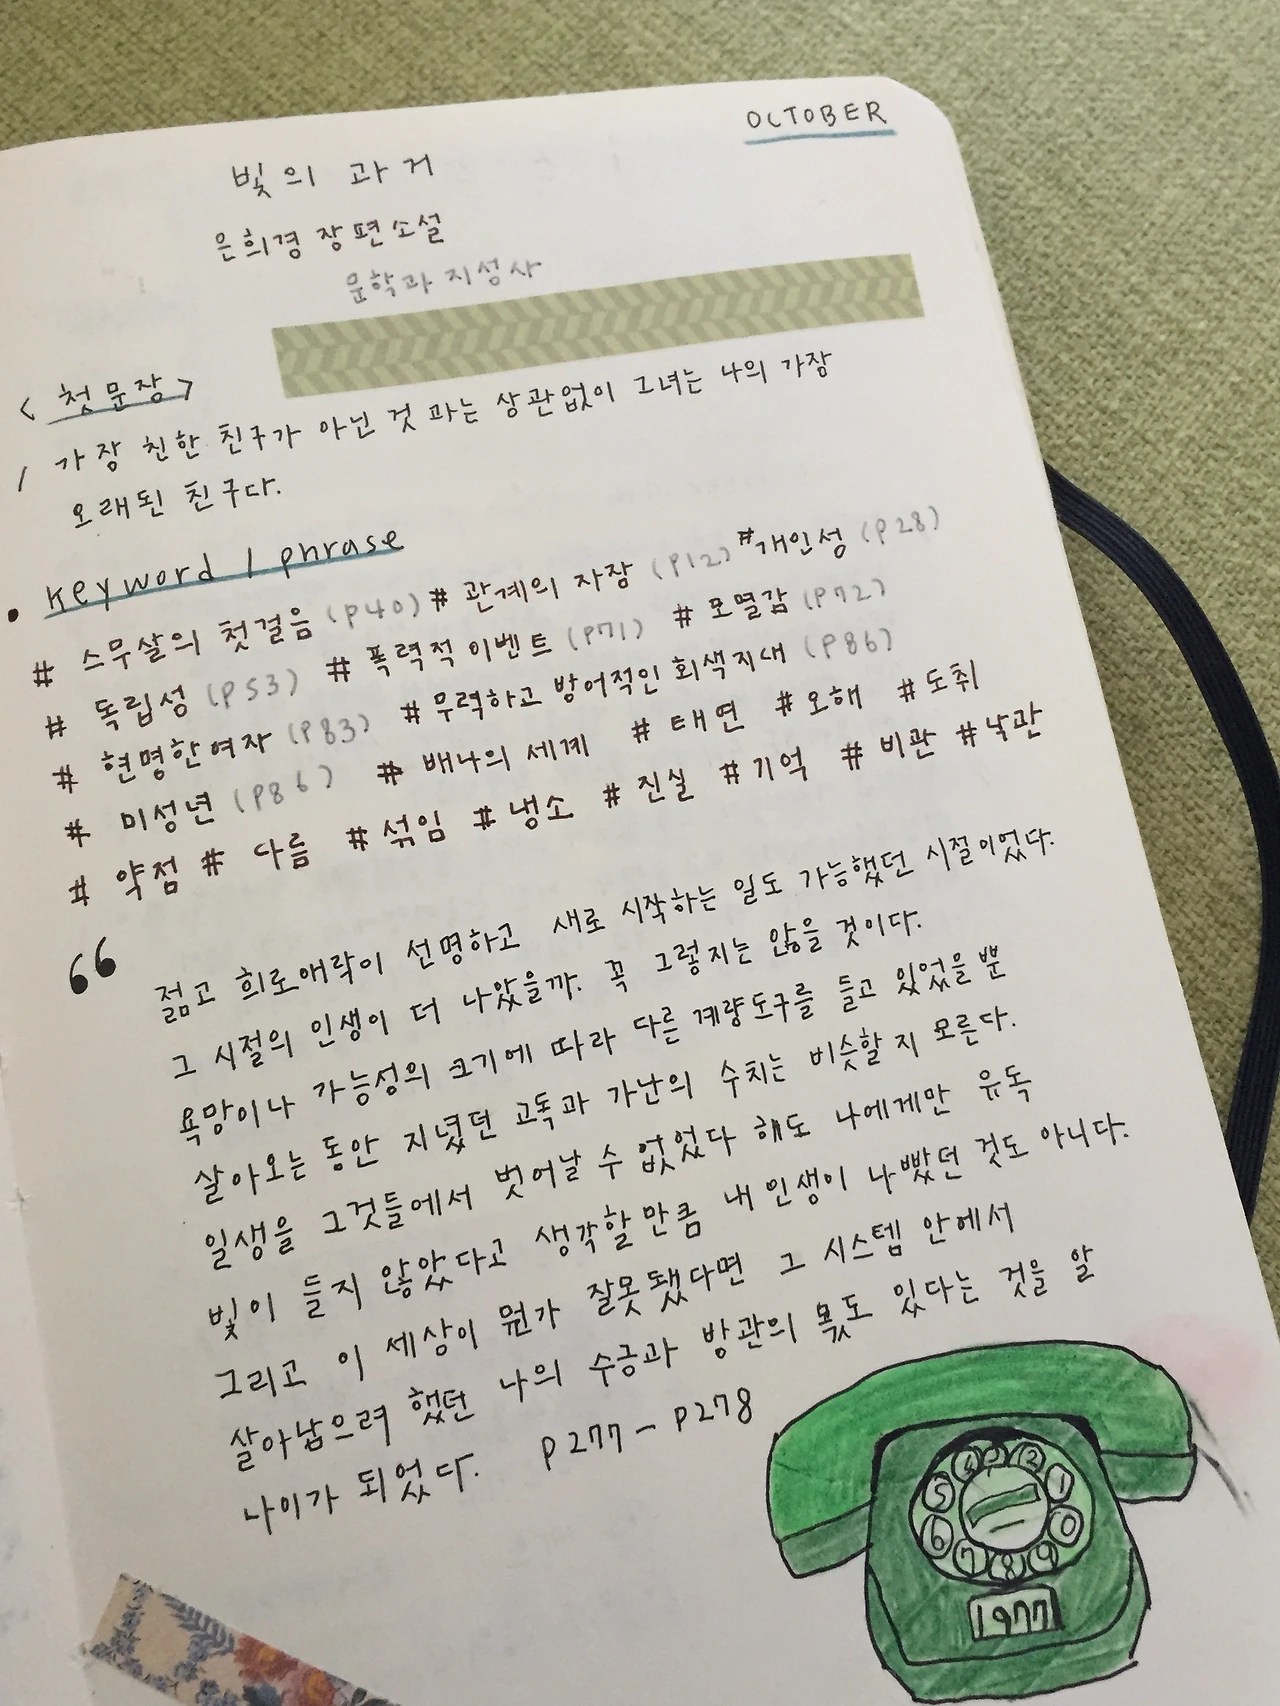 OCTOBER
빛의 과거
은희경 장편소설
문학과지성사
< 첫문장 >
/ 가장 친한 친구가 아닌 것 과는 상관없이 그녀는 나의 가장
오래된 친구다.
• keyword / phrase
# 스무살의 첫걸음 (P40) # 관계의 자장 (P12) #개인성 (P28)
# 독립성 (P53) # 폭력적 이벤트 (P71) # 모멸감 (P72)
# 현명한여자 (P83) # 무력하고 방어적인 회색지대 (P86)
# 미성년 (P86) # 배나의 세계 # 태연 # 오해 # 도취
# 약점 # 다름 # 섞임 # 냉소 # 진실 # 기억 # 비관 # 낙관
“ 젊고 희로애락이 선명하고 새로 시작하는 일도 가능했던 시절이었다.
그 시절의 인생이 더 나았을까. 꼭 그렇지는 않을 것이다.
욕망이나 가능성의 크기에 따라 다른 계량도구를 들고 있었을 뿐
살아오는 동안 지녔던 고독과 가난의 수치는 비슷할 지 모른다.
일생을 그것들에서 벗어날 수 없었다 해도 나에게만 유독
빛이 들지 않았다고 생각할 만큼 내 인생이 나빴던 것도 아니다.
그리고 이 세상이 뭔가 잘못됐다면 그 시스템 안에서
살아남으려 했던 나의 수긍과 방관의 몫도 있다는 것을 알
나이가 되었다. P277 - P278
5 4 3 2 1
6 7 8 9 0
1977